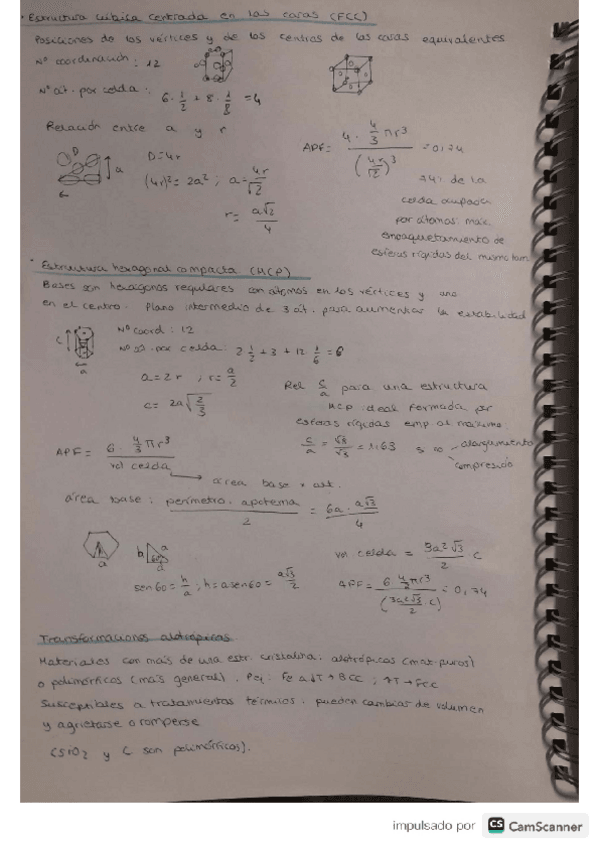 · Estructura cúbica centrada en las caras (FCC)
Posiciones de los vértices y de los centros de las caras equivalentes
Nº coordinación: 12
Nº át. por celda: 6 · 1/2 + 8 · 1/8 = 4
Relación entre a y r
D
a
D = 4r
(4r)² = 2a² ; a = 4r/√2
r = a√2/4
APF = 4 · 4/3 πr³ / (4r/√2)³ = 0,74
74% de la
celda ocupada
por átomos: máx.
empaquetamiento de
esferas rígidas del mismo tam.
· Estructura hexagonal compacta (HCP)
Bases son hexágonos regulares con átomos en los vértices y uno
en el centro. Plano intermedio de 3 át. para aumentar la estabilidad
c
a
Nº coord: 12
Nº át. por celda: 2 1/2 + 3 + 12 1/6 = 6
a = 2r ; r = a/2
c = 2a√(2/3)
Rel c/a para una estructura
HCP ideal formada por
esferas rígidas emp. al máximo
c/a = √8/√3 = 1,63
alargamiento
compresión
APF = 6 · 4/3 πr³ / vol celda
→ área base × alt.
área base: perímetro · apotema / 2 = 6a · a√3 / 4
a
h
a
60
sen60 = h/a ; h = a sen60 = a√3/2
vol celda = 3a²√3/2 · c
APF = 6 4/3 πr³ / = 0,74
Transformaciones alotrópicas
Materiales con más de una estr. cristalina: alotrópicos (mat. puros)
o polimórficos (más general). Pej: Fe a ↓T → BCC ; ↑T → FCC
Susceptibles a tratamientos térmicos: pueden cambiar de volumen
y agrietarse o romperse
(SiO₂ y C son polimórficos).
impulsado por CS CamScanner